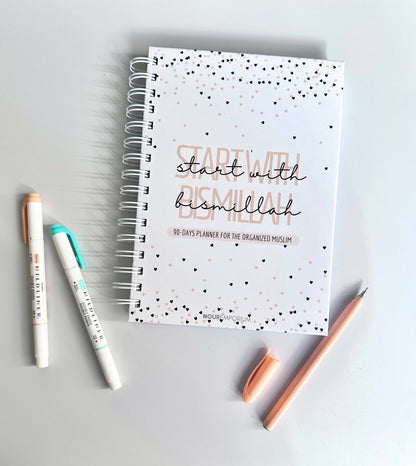 START WITH
start with
BISMILLAH
bismillah
90-DAYS PLANNER FOR THE ORGANIZED MUSLIM
NOUREMPORIUM
MILDLINER
MILDLINER